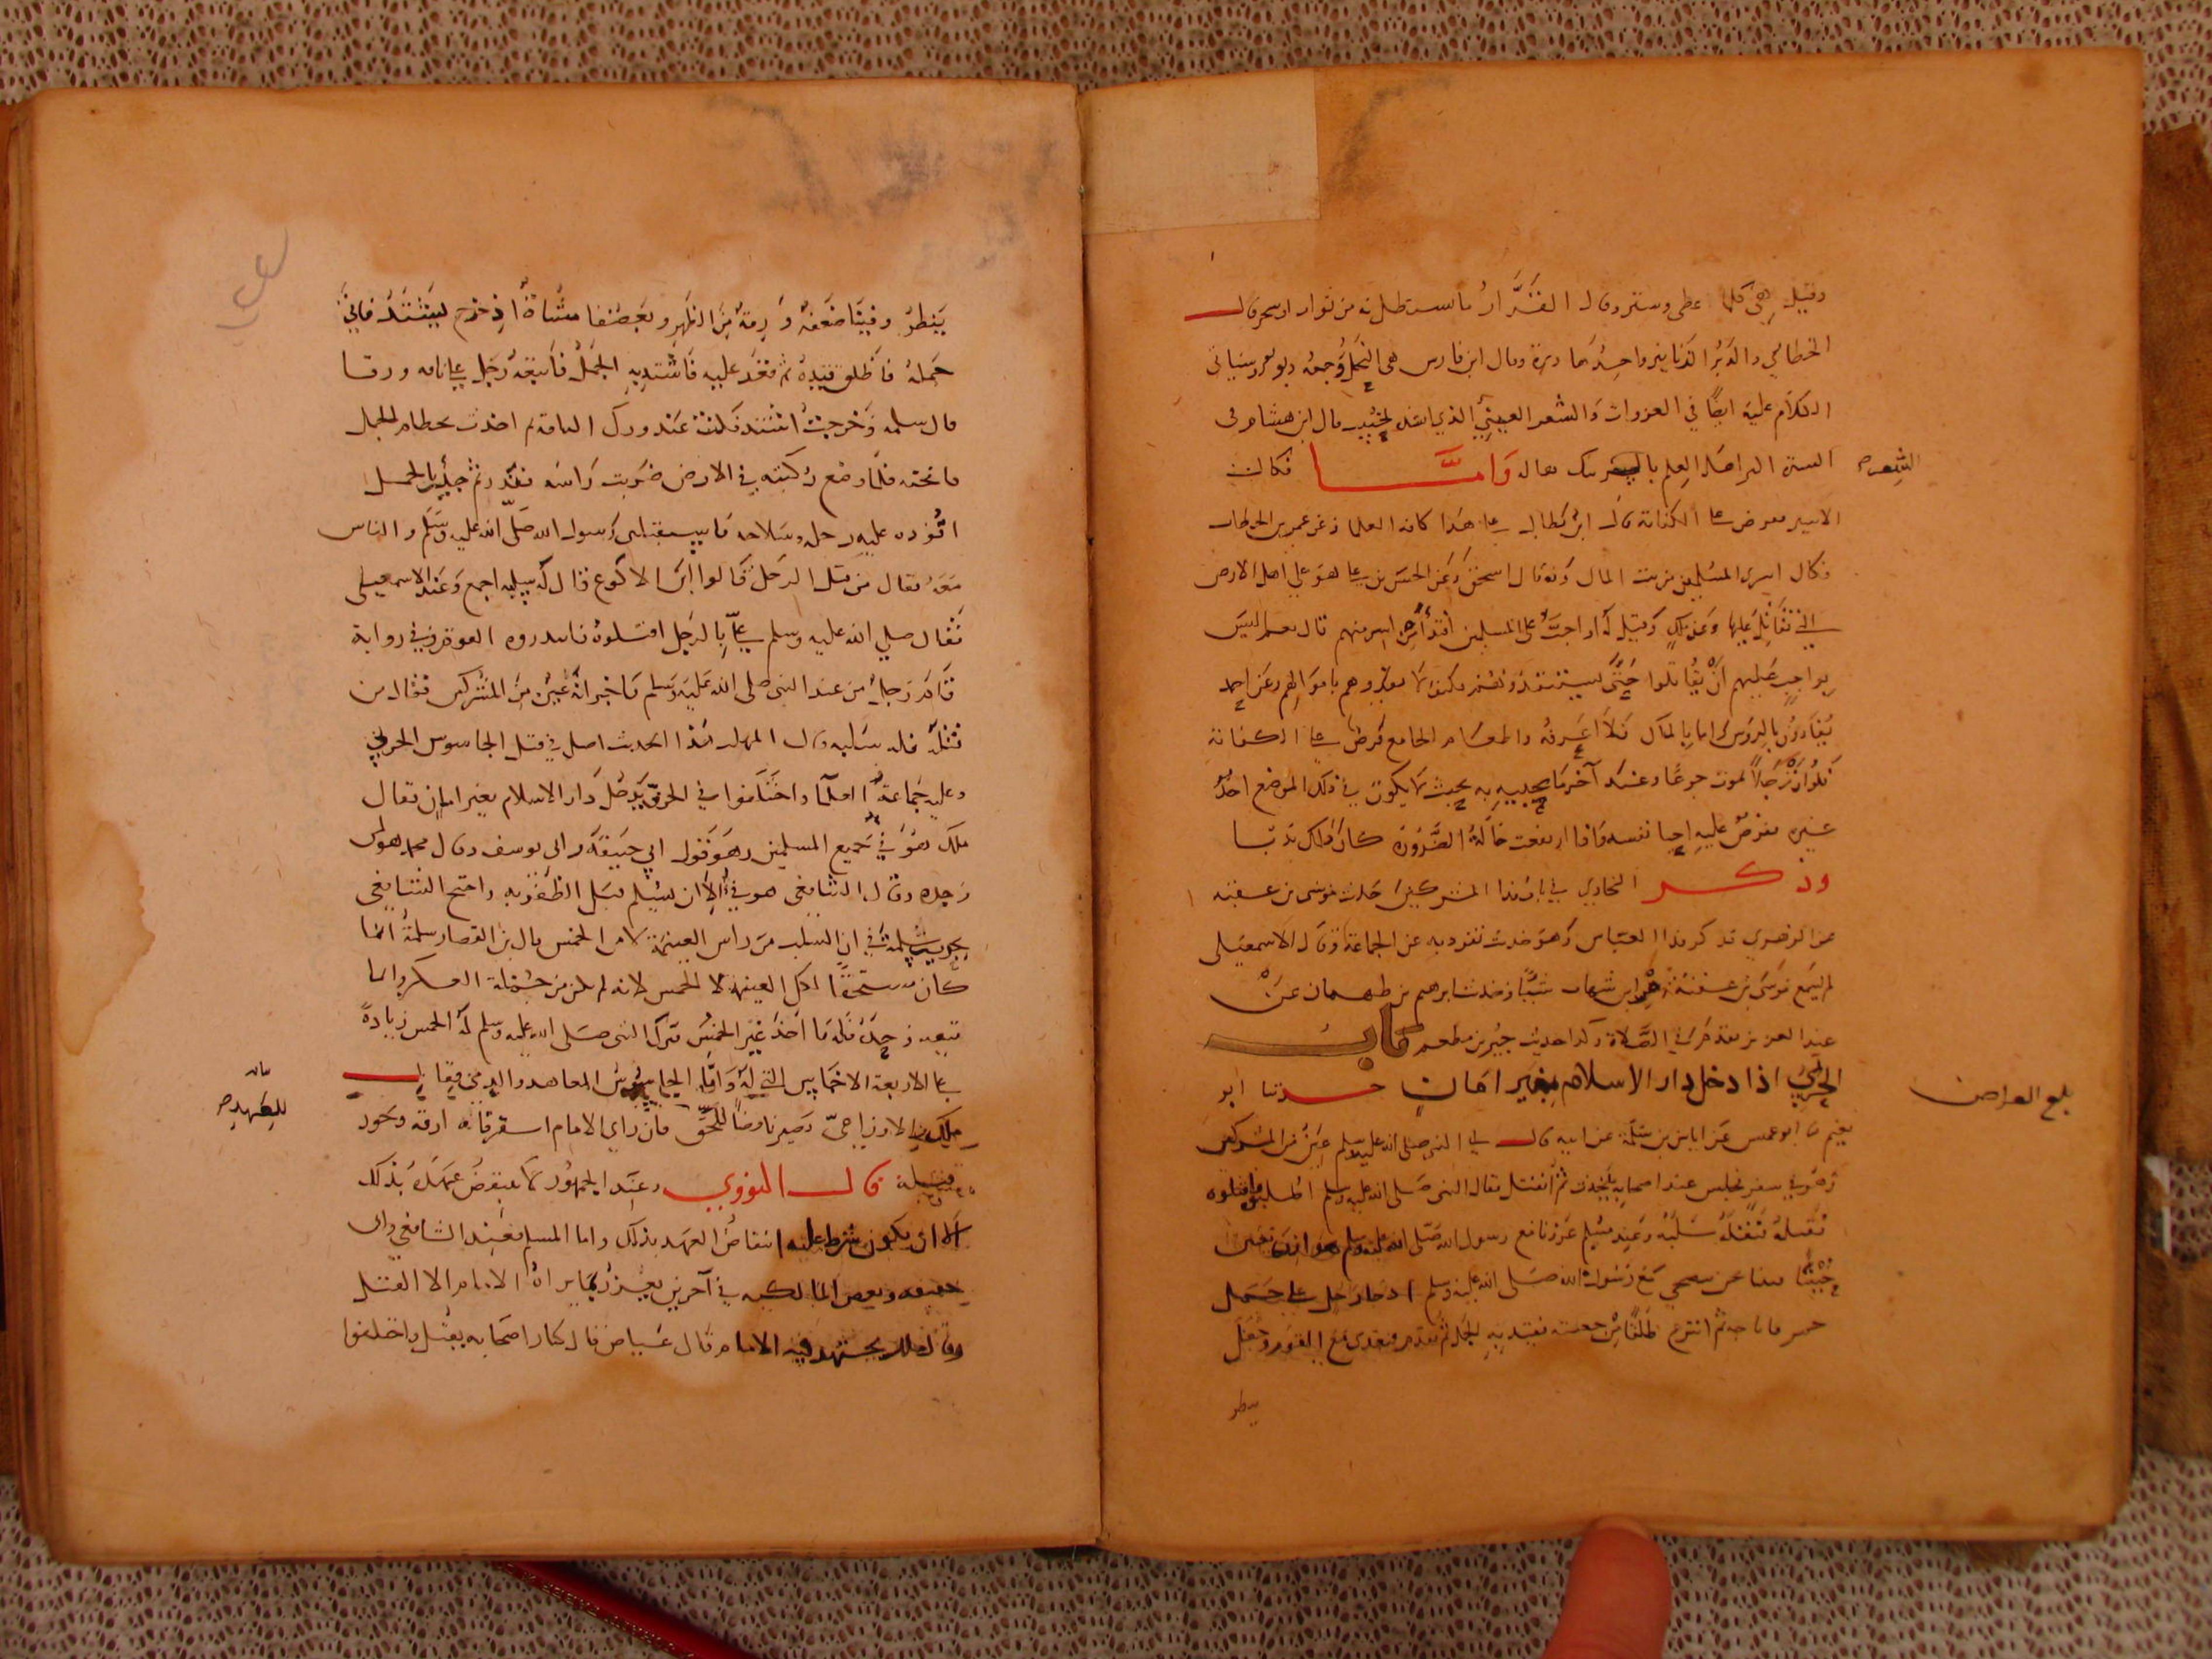 وقيل هي كلما اعطى وستر وقال القزاز ما استظللت من نوار او شجر قال
الخطابي والدبر الزنابير واحدها دبرة وقال ابن فارس هي النحل وجمعه دبور وسياتي
الكلام عليه ايضا في الغزوات والشعر العيني الذي انشد لخبيب قال ابن هشام في
السيرة اكثر اهل العلم بالشعر ينكرها له وَامَّا فكاك
الشعر صح
الاسير ففرض على الكفاية قال ابن بطال على هذا كافة العلما وعن عمر بن الخطاب
فكاك اسرى المسلمين من بيت المال وبه قال اسحق وعن الحسن بن علي هو على اهل الارض
التي تقاتل عليها وعن ملك وقيل له اواجب على المسلمين افتدا من اسر منهم قال نعم اليس
بواجب عليهم ان يقاتلوا حتى يستنقذوهم فكيف لا يفدوهم باموالهم وعن احمد
يفادون بالروس واما بالمال فلا اعرفه واطعام الجايع فرض على الكفاية
فلو ان رجلا يموت جوعا وعندك آخر ما يحييه به بحيث لا يكون في ذلك الموضع احد
غيرك ففرض عليه احيا نفسه واذا ارتفعت حالة الضرورة كان ذلك ندبا
وذكر البخاري في باب فدا المشركين حديث موسى بن عقبة
عن الزهري قد كر فدا العباس وهو حديث تفرد به عن الجماعة وقال الاسمعيلي
لم يسمع موسى بن عقبة من ابن شهاب شيئا وحديث ابرهيم بن طهمان عن
عبد العزيز تقدم في الصلاة وكذا حديث جبير بن مطعم باب
الحربي اذا دخل دار الاسلام بغير امان حدثنا ابو
بلغ العراض
نعيم ثنا ابو عميس عن اياس بن سلمة عن ابيه قال اتى النبي صلى الله عليه وسلم عين من المشركين
وهو في سفر فجلس عند اصحابه يتحدث ثم انفتل فقال النبي صلى الله عليه وسلم اطلبوه فاقتلوه
فقتله فنفله سلبه وعند مسلم غزونا مع رسول الله صلى الله عليه وسلم هوازن فبينا
بينا نحن نتضحى مع رسول الله صلى الله عليه وسلم اذ جا رجل على جمل
احمر فاناخه ثم انتزع طلقا من حقبه فقيد به الجمل ثم تقدم فتغدى مع القوم وجعل
ينظر
ينظر وفينا ضعفة ورقة من الظهر وبعضنا مشاة اذ خرج يشتد فاتى
جمله فاطلق قيده ثم قعد عليه فاشتد به الجمل فاتبعه رجل على ناقة ورقا
قال سلمة وخرجت اشتد فكنت عند ورك الناقة ثم اخذت بخطام الجمل
فانخته فلما وضع ركبته في الارض ضربت راسه فندر ثم جيت بالجمل
اقوده عليه رحله وسلاحه فاستقبلني رسول الله صلى الله عليه وسلم والناس
معه فقال من قتل الرجل قالوا ابن الاكوع قال له سلبه اجمع وعند الاسمعيلي
فقال صلي الله عليه وسلم علي بالرجل اقتلوه فابتدره القوم وفي رواية
قام رجل من عند النبي صلى الله عليه وسلم فاخبر انه عين من المشركين فقال من
قتله فله سلبه قال المهلب هذا الحديث اصل في قتل الجاسوس الحربي
وعليه جماعة العلما واختلفوا في الحربي يدخل دار الاسلام بغير امان فقال
ملك هو في جميع المسلمين وهو قول ابي حنيفة وابي يوسف وقال محمد هو لمن
وجده وقال الشافعي هو في الا ان يسلم قبل الظفر به واحتج الشافعي
بحديث سلمة في ان السلب من راس الغنيمة لا من الخمس قال بن القصار سلمة انما
كان مستحقا لكل الغنيمة لا الخمس لانه لم يكن من جملة العسكر وانما
تبعه وحده فله ما اخذ غير الخمس فترك النبي صلى الله عليه وسلم له الخمس زيادة
على الاربعة الاخماس التي له وَامَّا الجاسوس المعاهد والذمي فقال
بيان للعهد صح
ملك والاوزاعي يصير ناقضا للعهد فان راى الامام استرقاقه ارقه ويجوز
قتله قال النووي وعند الجمهور لا ينقض عهده بذلك
الا ان يكون شرط عليه انتقاض العهد بذلك واما المسلم فعند الشافعي وابى
حنيفه وبعض المالكيه في آخرين يعزر بما يراه الامام الا القتل
وقال ملك يجتهد فيه الامام قال عياض قال كبار اصحابه يقتل واختلفوا